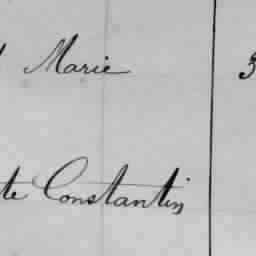 Marie 3
te Constantin